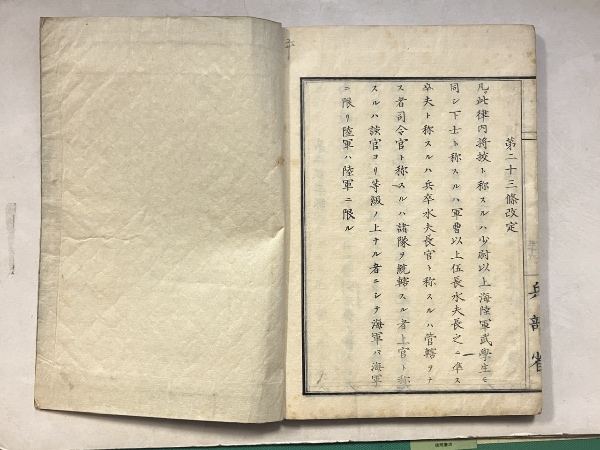 第二十三條改定
凡ソ此律内將校ト称スルハ少尉以上海陸軍武學生モ
同シ下士ト称スルハ軍曹以上伍長水夫長之ニ準ス
卒夫ト称スルハ兵卒水夫長官ト称スルハ管轄ヲナ
ス者司令官ト称スルハ諸隊ヲ統轄スル者上官ト称
スルハ該官ヨリ等級ノ上ナル者ニシテ海軍ハ海軍
ニ限リ陸軍ハ陸軍ニ限ル
兵部省